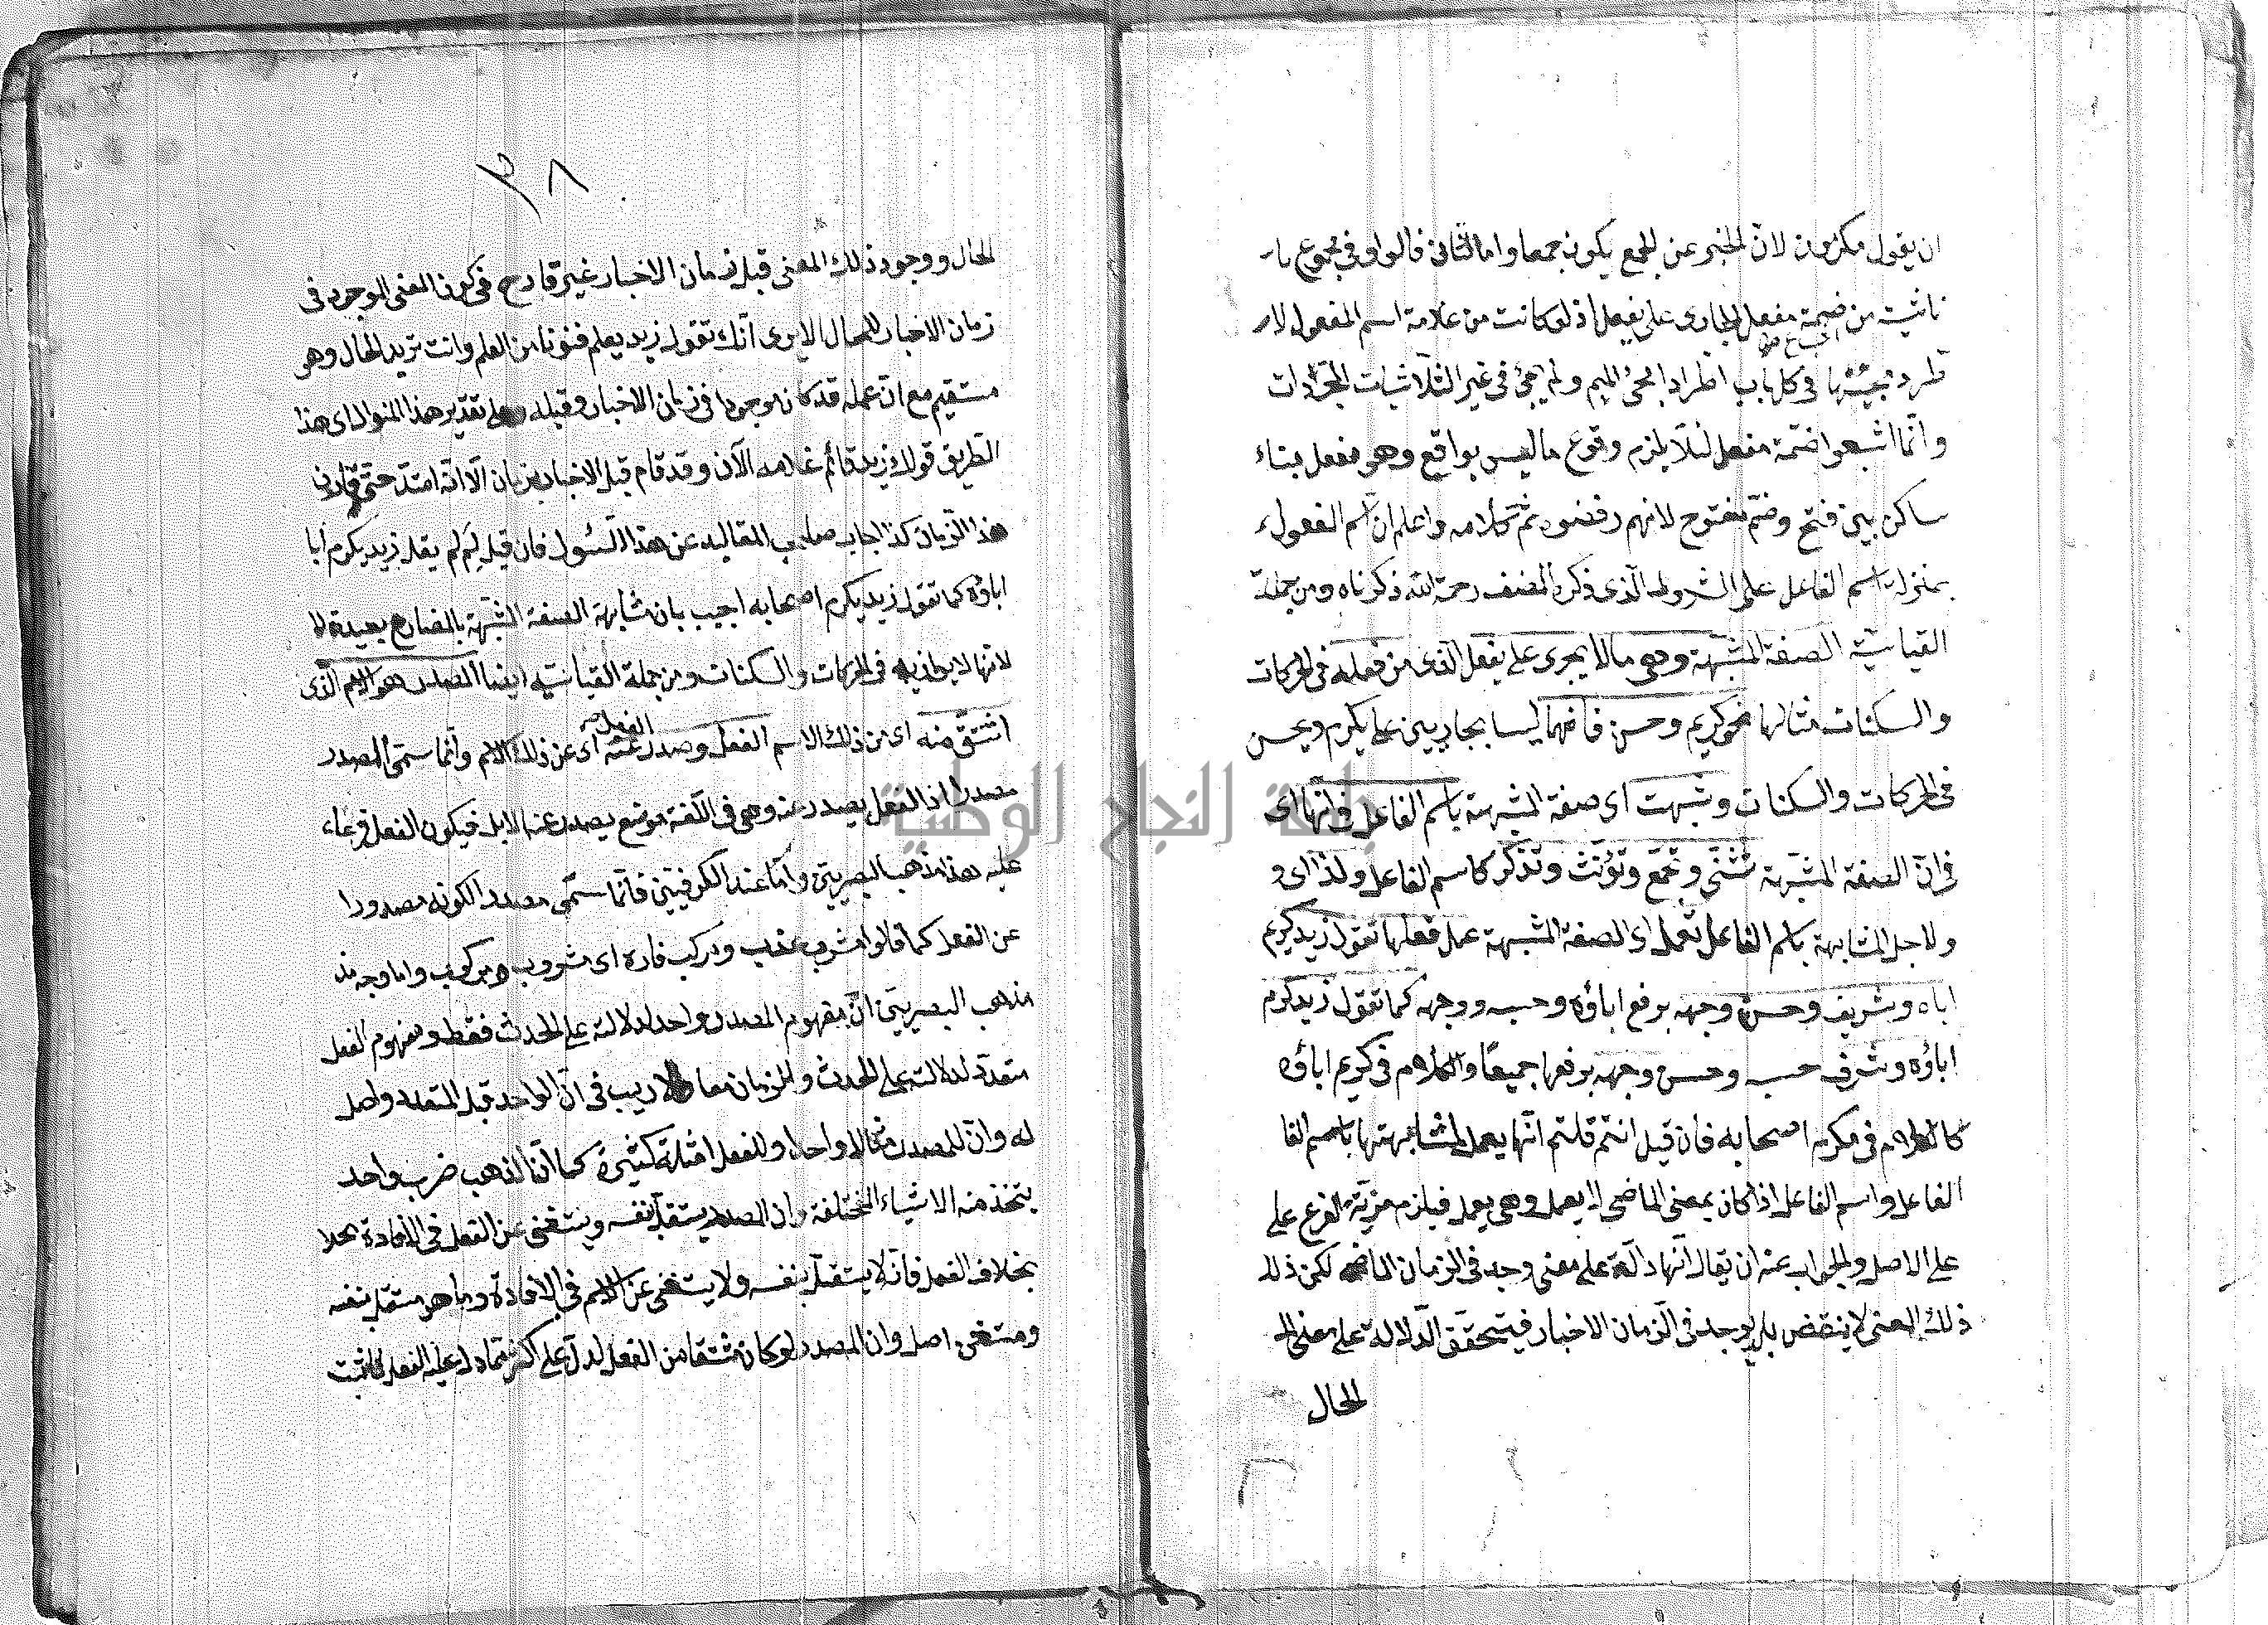 ان يقول مكرمون لان الخبر عن الجمع يكون جمعا واما الثاني فالواو في مجموع نا
ناشية من ضمة مفعل الجارى على يفعل اذ لو كانت من علامة اسم المفعول لا
طرد مجيئها في كل باب اطراد مجئ الميم ولم يجئ في غير الثلاثيات المجردات
وانما اشبعوا ضمة مفعل لئلا يلزم وقوع ما ليس بواقع وهو مفعل بناء
ساكن بين فتح وضم مفتوح لانهم رفضوه تم كلامه واعلم ان اسم المفعول
بمنزلة اسم الفاعل على الشروط الذى ذكره المصنف رحمة الله ذكرناه ومن جملة
القياسية الصفة المشبهة وهى ما لا يجرى على يفعل الذى من فعله في الحركات
والسكنات مثالها نحو كريم وحسن فانهما ليسا بجاريين على يكرم ويحسن
في الحركات والسكنات وشبهت اى صفة المشبهة باسم الفاعل في انها اى
في ان الصفة المشبهة تثنى وتجمع وتؤنث وتذكر كاسم الفاعل ولذا اى و
ولاجل المشابهة باسم الفاعل تعمل اى الصفة المشبهة عمل فعلها تقول زيد كريم
اباه وشريف وحسن وجهه برفع اباؤه وحسبه ووجهه كما تقول زيد كرم
اباؤه وشرف حسبه وحسن وجهه برفعها جميعا والكلام في كريم اباؤه
كالكلام في مكرم اصحابه فان قيل انتم قلتم انها يعمل لمشابهتها باسم الفا
الفاعل واسم الفاعل اذا كان بمعنى الماضى لا يعمل وهى يعمل فيلزم مزية الفرع على
على الاصل والجواب عنه ان يقال انها دالة على معنى وجد في الزمان الماضى لكن ذلك
ذلك المعنى لا ينقض بل يوجد في الزمان الاخبار فيتحقق الدلالة على معنى الحـ
الحال
٣٨
الحال ووجود ذلك المعنى قبل زمان الاخبار غير قادح في كون المعنى الموجود في
زمان الاخبار للحال الا يرى انك تقول زيد يعلم فنونا من العلم وانت تريد الحال وهى
مستقيم مع ان علمه قد كان موجودا في زمان الاخبار وقبله وعلى تقدير هذا المنوال اى هذا
الطريق قولك زيد قائم غلامه الآن وقد قام قبل الاخبار بزمان الا انه امتد حتى قارن
هذا الزمان كذا اجاب صاحب المقاليد عن هذا السؤل فان قيل لم لم يقل زيد يكرم ابا
اباؤه كما تقول زيد يكرم اصحابه اجيب بان مشابهة الصفة المشبهة بالمضارع بعيدة لا
لانها لا يوازيه في الحركات والسكنات ومن جملة القياسية ايضا المصدر هو الاسم الذى
اشتق منه اى من ذلك الاسم الفعل وصدر عنه الفعل اى عن ذلك الاسم وانما سمى المصدر
مصدرا اذ الفعل يصدر عنه وهى في اللغة موضع يصدر عنه الابل فيكون الفعل فرعا
عليه هذا مذهب البصريين واما عند الكوفيين فانما سمى مصدرا لكونه مصدورا
عن الفعل كما قالوا مشرب عذب ومركب فاره اى مشروب ومركوب واما وجه مذ
مذهب البصريين ان مفهوم المصدر واحد لدلالته على الحدث فقط ومفهوم الفعل
متعدد لدلالته على الحدث والزمان معا ولا ريب في ان الواحد قبل المتعدد واصل
له وان للمصدر مثالا واحدا وللفعل امثلة كثيرة كما ان الذهب ضرب واحد
يتخذ منه الاشياء المختلفة وان المصدر يستقل بنفسه ويستغنى عن الفعل في الافادة بخلا
بخلاف الفعل فانه لا يستقل بنفسه ولا يستغنى عن الاسم في الافادة وما هو مستقل بنفسه
ومستغنى اصل وان المصدر لو كان مشتقا من الفعل لدل على اكثر مما دل عليه الفعل
جامعة النجاح الوطنية